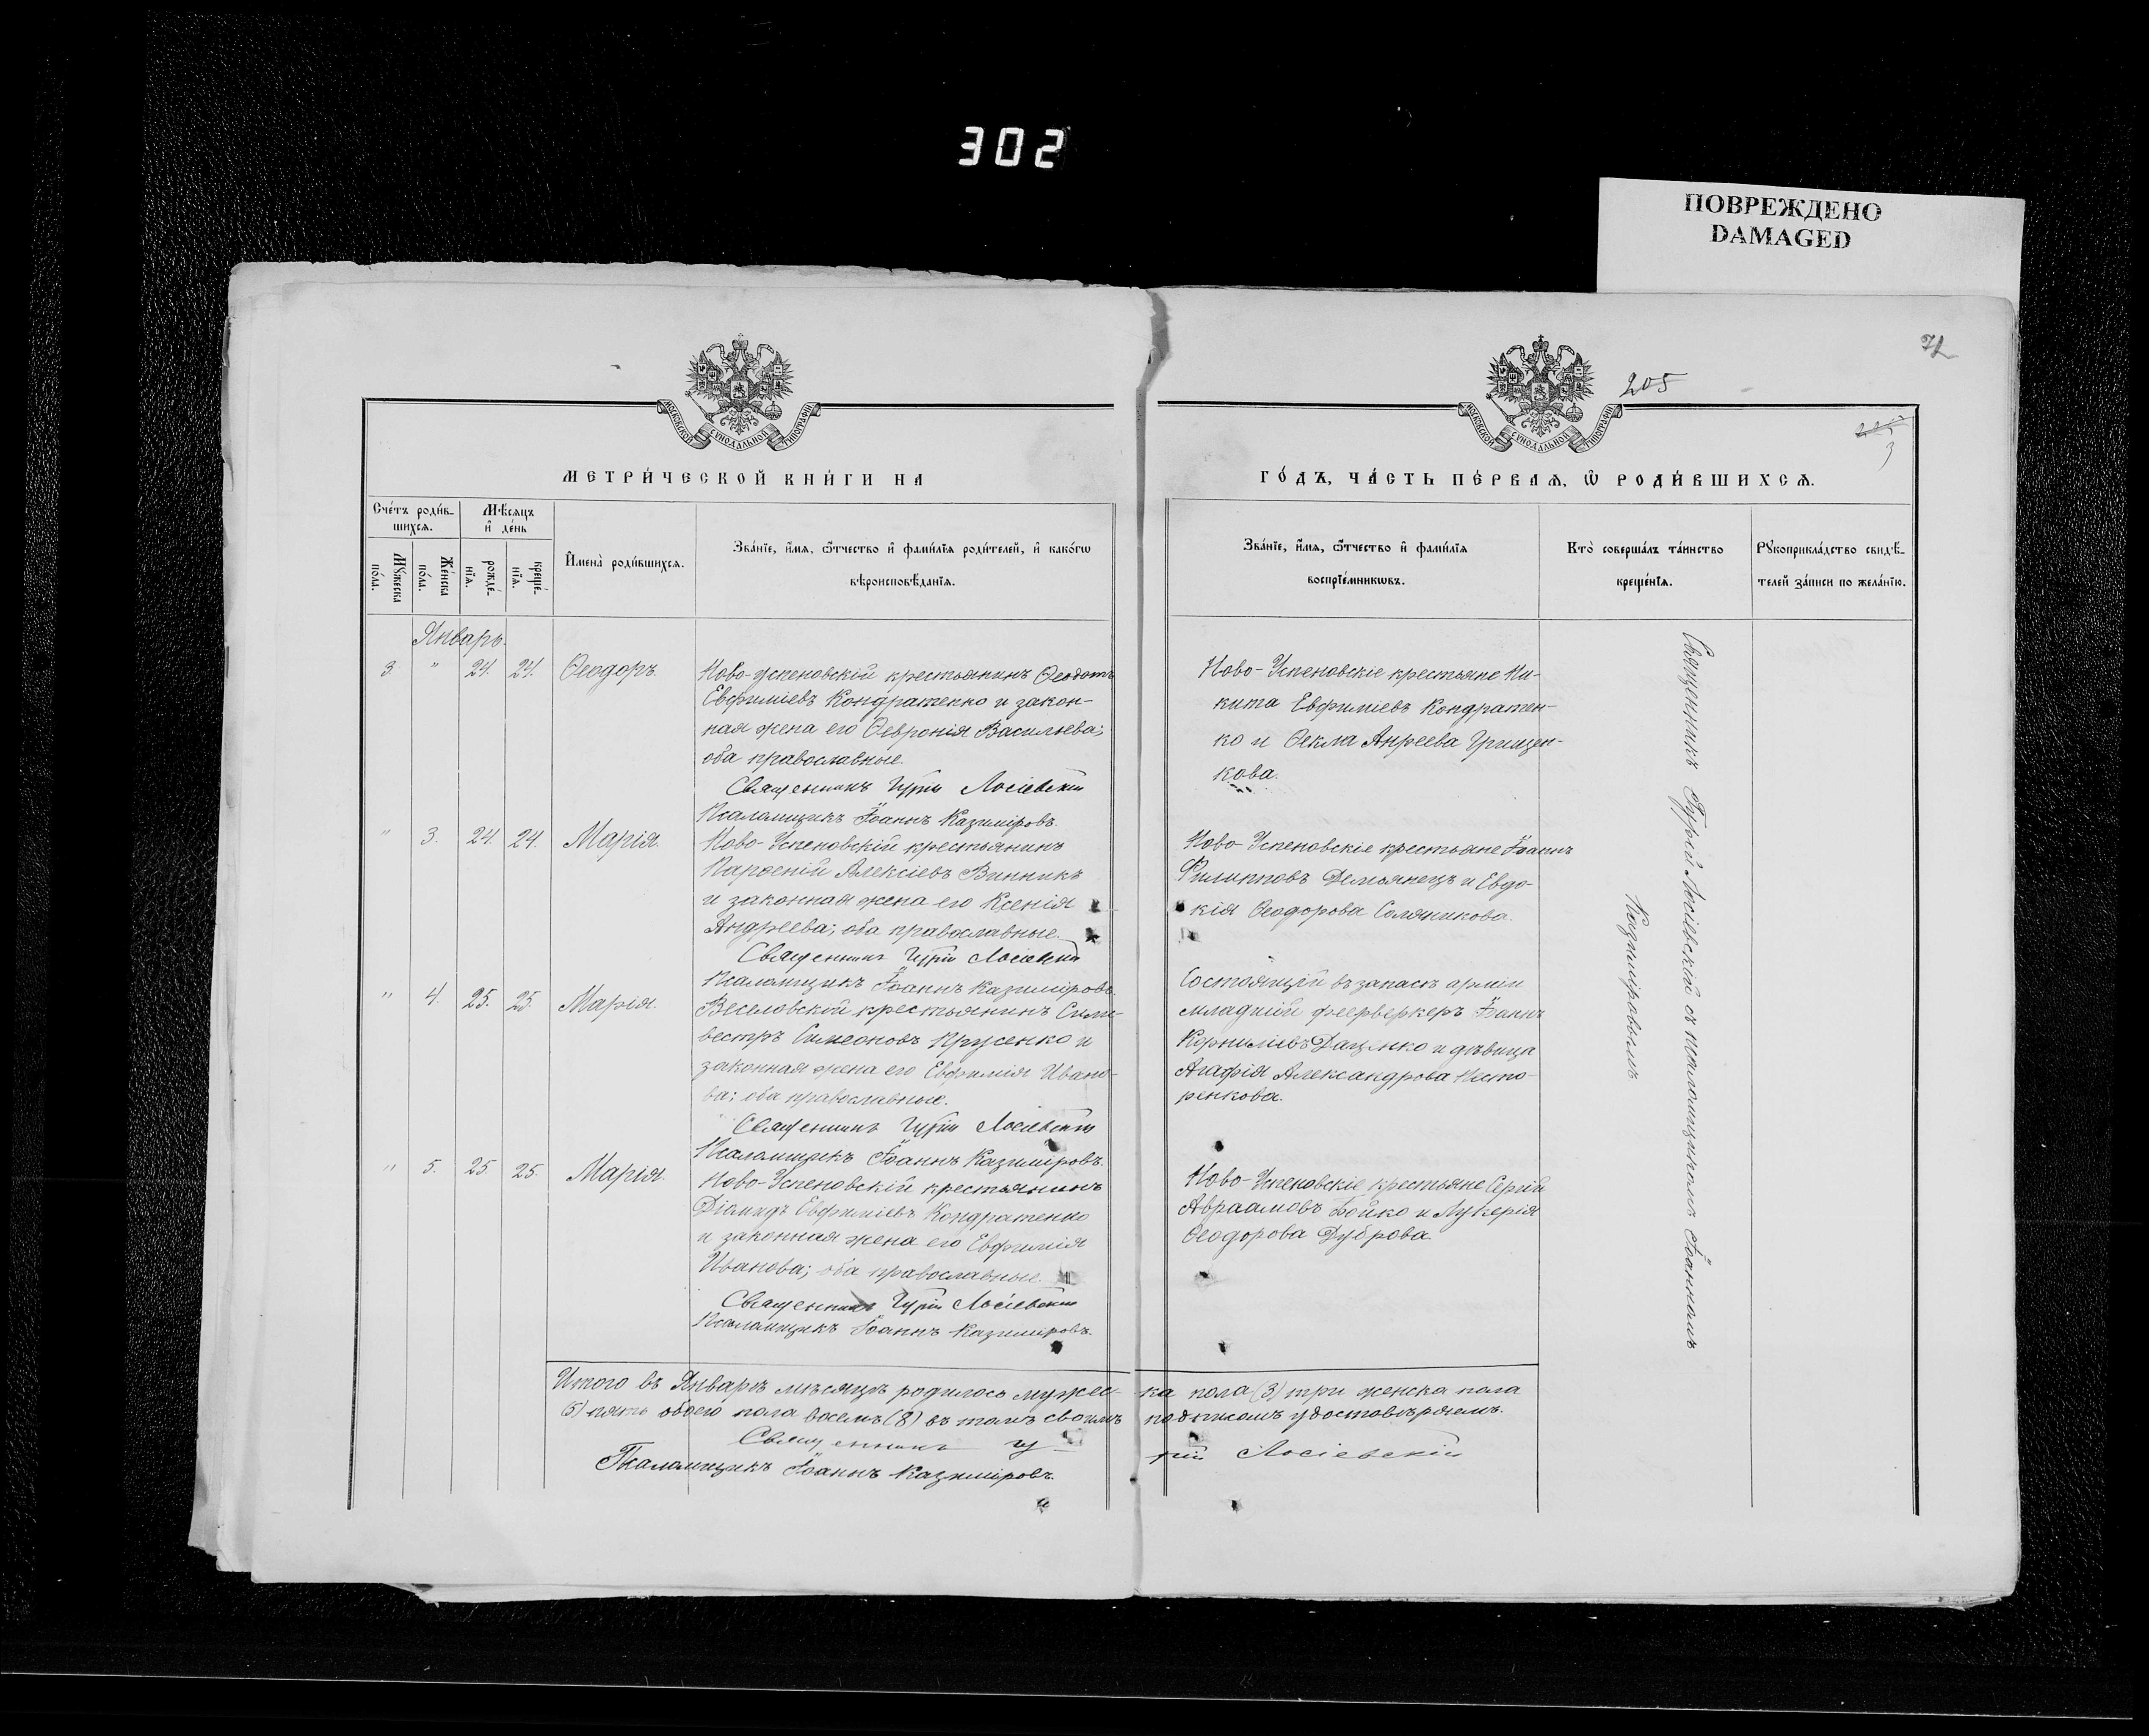 302
ПОВРЕЖДЕНО
DAMAGED
72
205
3
МОСКОВСКОЙ СѴНОДАЛЬНОЙ ТИПОГРАФІИ
МОСКОВСКОЙ СѴНОДАЛЬНОЙ ТИПОГРАФІИ
МЕТРИ́ЧЕСКОЙ КНИ́ГИ НА
ГО́ДЪ, ЧА́СТЬ ПЕ́РВАѦ, Ѡ҆ РОДИ́ВШИХСѦ.
Сче́тъ роди́в-
шихсѧ.
Мѣ́сѧцъ
и҆ де́нь
Мꙋ́жеска
по́ла.
Же́нска
по́ла.
рожде́-
нїѧ.
креще́-
нїѧ.
И҆мена̀ роди́вшихсѧ.
Зва́нїе, и҆́мѧ, ѻ҆́тчество и҆ фами́лїѧ роди́телей, и҆ како́гѡ
вѣроисповѣ́данїѧ.
Зва́нїе, и҆́мѧ, ѻ҆́тчество и҆ фами́лїѧ
воспрїе́мникѡвъ.
Кто̀ соверша́лъ та́инство
креще́нїѧ.
Рꙋкоприкла́дство свидѣ́-
телей за́писи по жела́нїю.
Январь.
3. " 24. 24. Ѳеодоръ.
Ново-Успеновскій крестьянинъ Ѳеодотъ
Евфиміевъ Кондратенко и закон-
ная жена его Ѳевронія Васильева;
оба православные.
Священникъ Гурій Лосіевскій
Псаломщикъ Іоаннъ Казиміровъ.
Ново-Успеновскіе крестьяне Ни-
кита Евфиміевъ Кондратен-
ко и Ѳекла Анреева Грицен-
кова.
" 3. 24. 24. Марія.
Ново-Успеновскій крестьянинъ
Парѳеній Алексіевъ Винникъ
и законная жена его Ксенія
Андреева; оба православные.
Священникъ Гурій Лосіевскій
Псаломщикъ Іоаннъ Казиміровъ.
Ново-Успеновскіе крестьяне Іоаннъ
Филипповъ Демьянецъ и Евдо-
кія Ѳеодорова Соляникова.
" 4. 25. 25. Марія.
Веселовскій крестьянинъ Силь-
вестръ Симеоновъ Прусенко и
законная жена его Евфимія Ивано-
ва; оба православные.
Священникъ Гурій Лосіевскій
Псаломщикъ Іоаннъ Казиміровъ.
Состоящій въ запасѣ арміи
младшій феерверкеръ Іоаннъ
Корниліевъ Даценко и дѣвица
Агафія Александрова Несто-
ренкова.
" 5. 25. 25. Марія.
Ново-Успеновскій крестьянинъ
Діомидъ Евфиміевъ Кондратенко
и законная жена его Евфимія
Иванова; оба православные.
Священникъ Гурій Лосіевскій
Псаломщикъ Іоаннъ Казиміровъ.
Ново-Успеновскіе крестьяне Сергій
Авраамовъ Бойко и Лукерія
Ѳеодорова Дуброва.
Священникъ Гурій Лосіевскій съ псаломщикомъ Іоанномъ
Казиміровымъ
Итого въ Январѣ мѣсяцѣ родилось мужес- ка пола (3) три женска пола
(5) пять обоего пола восемь (8) въ томъ своимъ подписомъ удостовѣряемъ.
Священникъ Гу- рій Лосіевскій
Псаломщикъ Іоаннъ Казиміровъ.